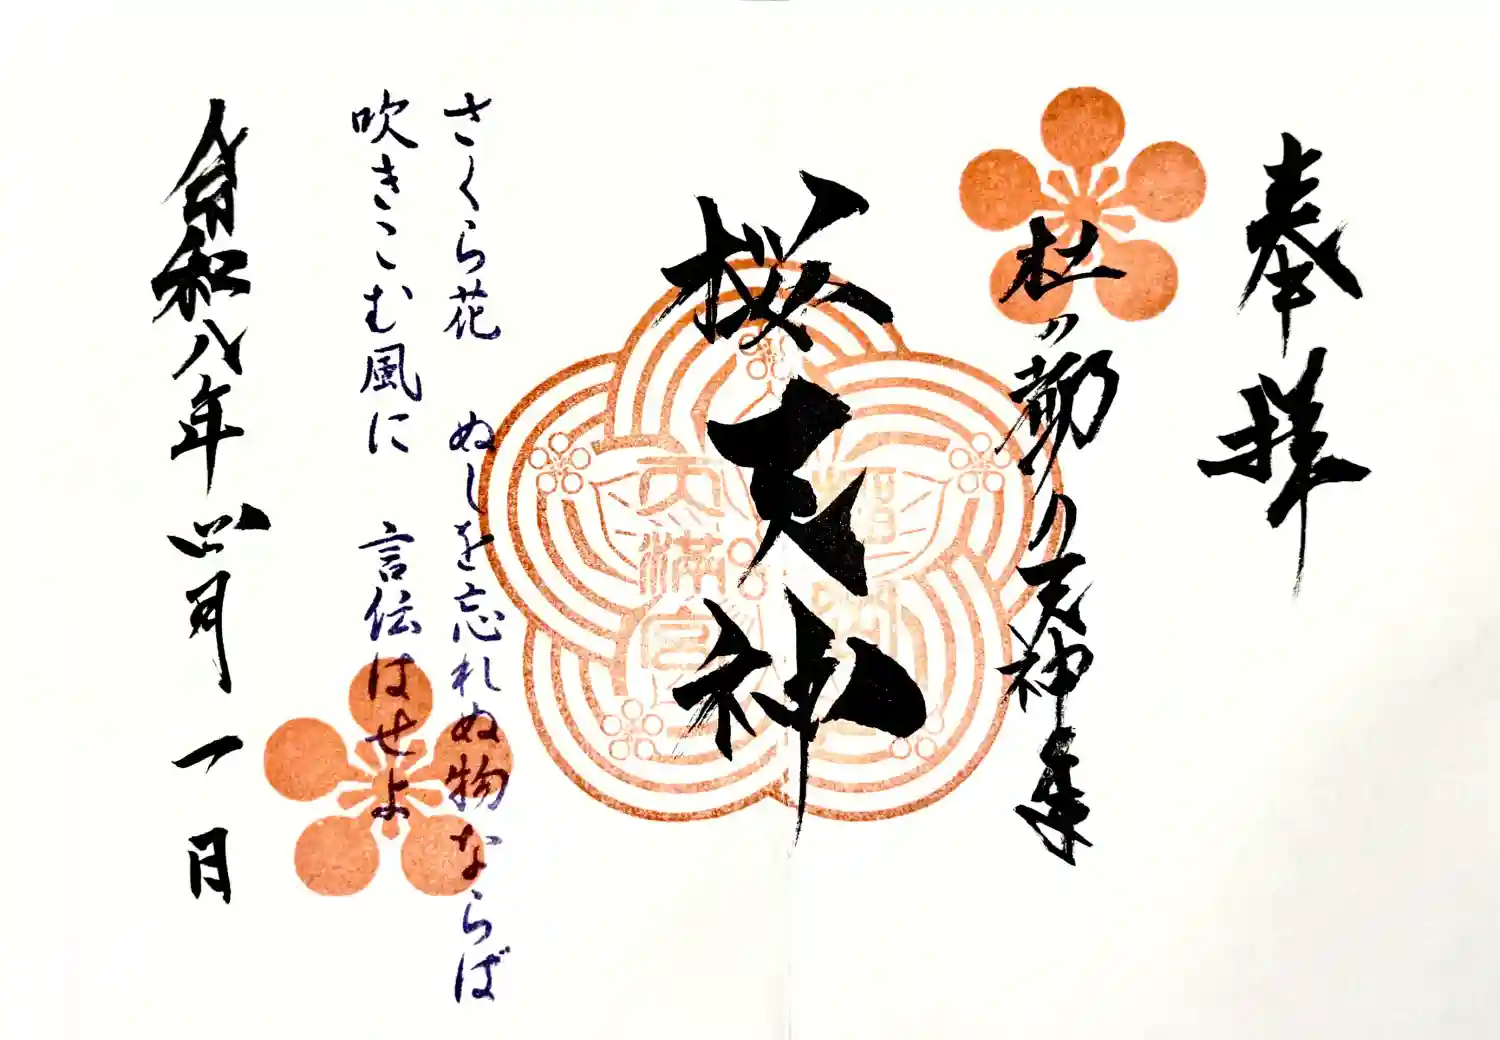 奉拝
天神
桜天神
さくら花 ぬしを忘れぬ物ならば
吹きこむ風に 言伝はせよ
令和八年四月一日
天満宮